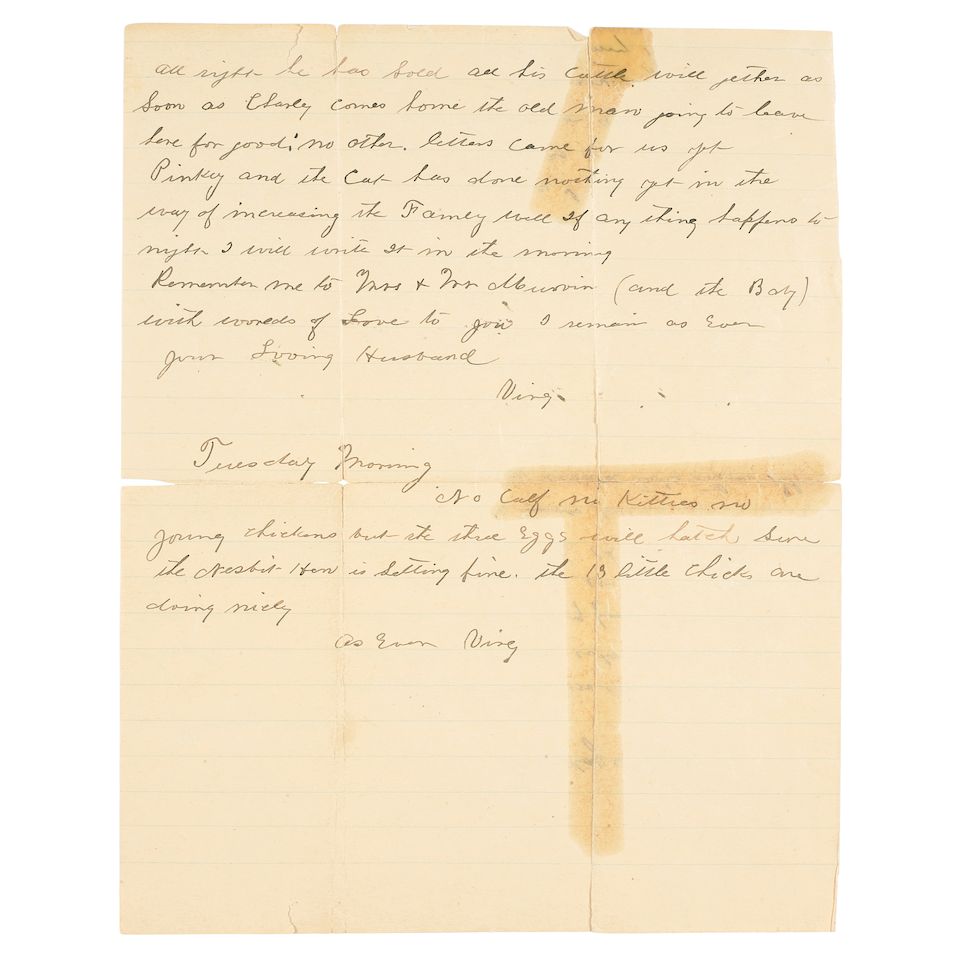 all right he has sold all his cattle will gether as
soon as Charley comes home the old man going to leave
here for good; no other. letters came for us yt
Pinkey and the Cat has done nothing yet in the
way of increasing the Famely well If any thing happens to
night I will write It in the morning
Remember me to Mrs & Mr Murvin (and the Baby)
with woreds of Love to you I remain as Ever
your Loving Husband
Virg
Tuesday Morning
No Calf no Kitties no
young chickens but the three Eggs will hatch Sure
the Nesbit Hen is Setting fine. the 13 little Chicks are
doing nicely
as Ever Virg